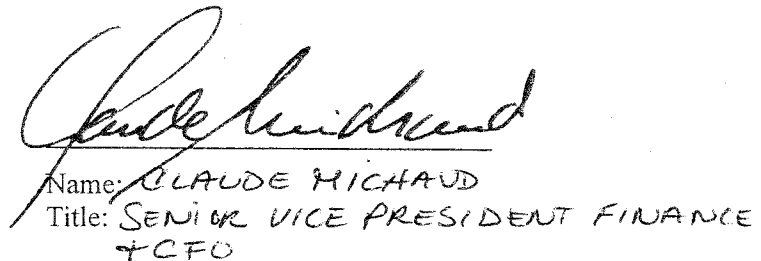 Claude Michaud
Name: CLAUDE MICHAUD
Title: SENIOR VICE PRESIDENT FINANCE
+ CFO